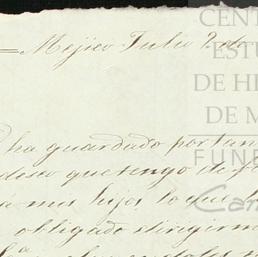 = Mejico Julio 2. de
ha guardado por tan
deseo que tengo de
á mis hijos lo que
obligado dirigirm
CENT
ESTU
DE HI
DE M
FUNE
Car